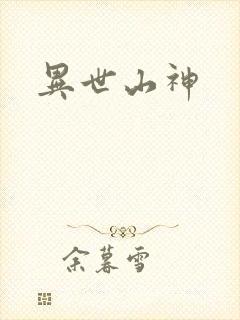 異世山神
余暮雪